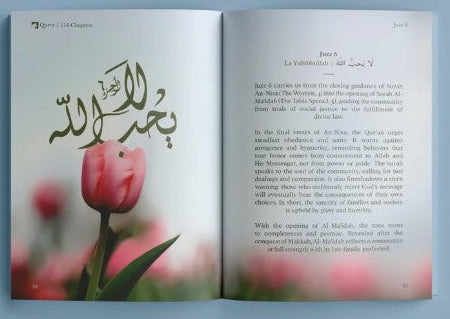 Quran | 114 Chapters
لا يحب الله
30
Juz 6
Juzz 6
La Yuhibbullah | لا يُحِبُّ اللهُ
Juzz 6 carries us from the closing guidance of Surah
An-Nisa (The Women, 4) into the opening of Surah Al-
Ma'idah (The Table Spread, 5), guiding the community
from trials of social justice to the fulfillment of
divine law.
In the final verses of An-Nisa, the Qur'an urges
steadfast obedience and unity. It warns against
arrogance and hypocrisy, reminding believers that
true honor comes from commitment to Allah and
His Messenger, not from power or pride. The surah
speaks to the soul of the community, calling for just
dealings and compassion. It also foreshadows a stern
warning: those who stubbornly reject God's message
will eventually bear the consequences of their own
choices. In short, the sanctity of families and society
is upheld by piety and humility.
With the opening of Al-Ma'idah, the tone turns
to completeness and promise. Revealed after the
conquest of Makkah, Al-Ma'idah refines a community
at full strength with its law finally perfected.
31